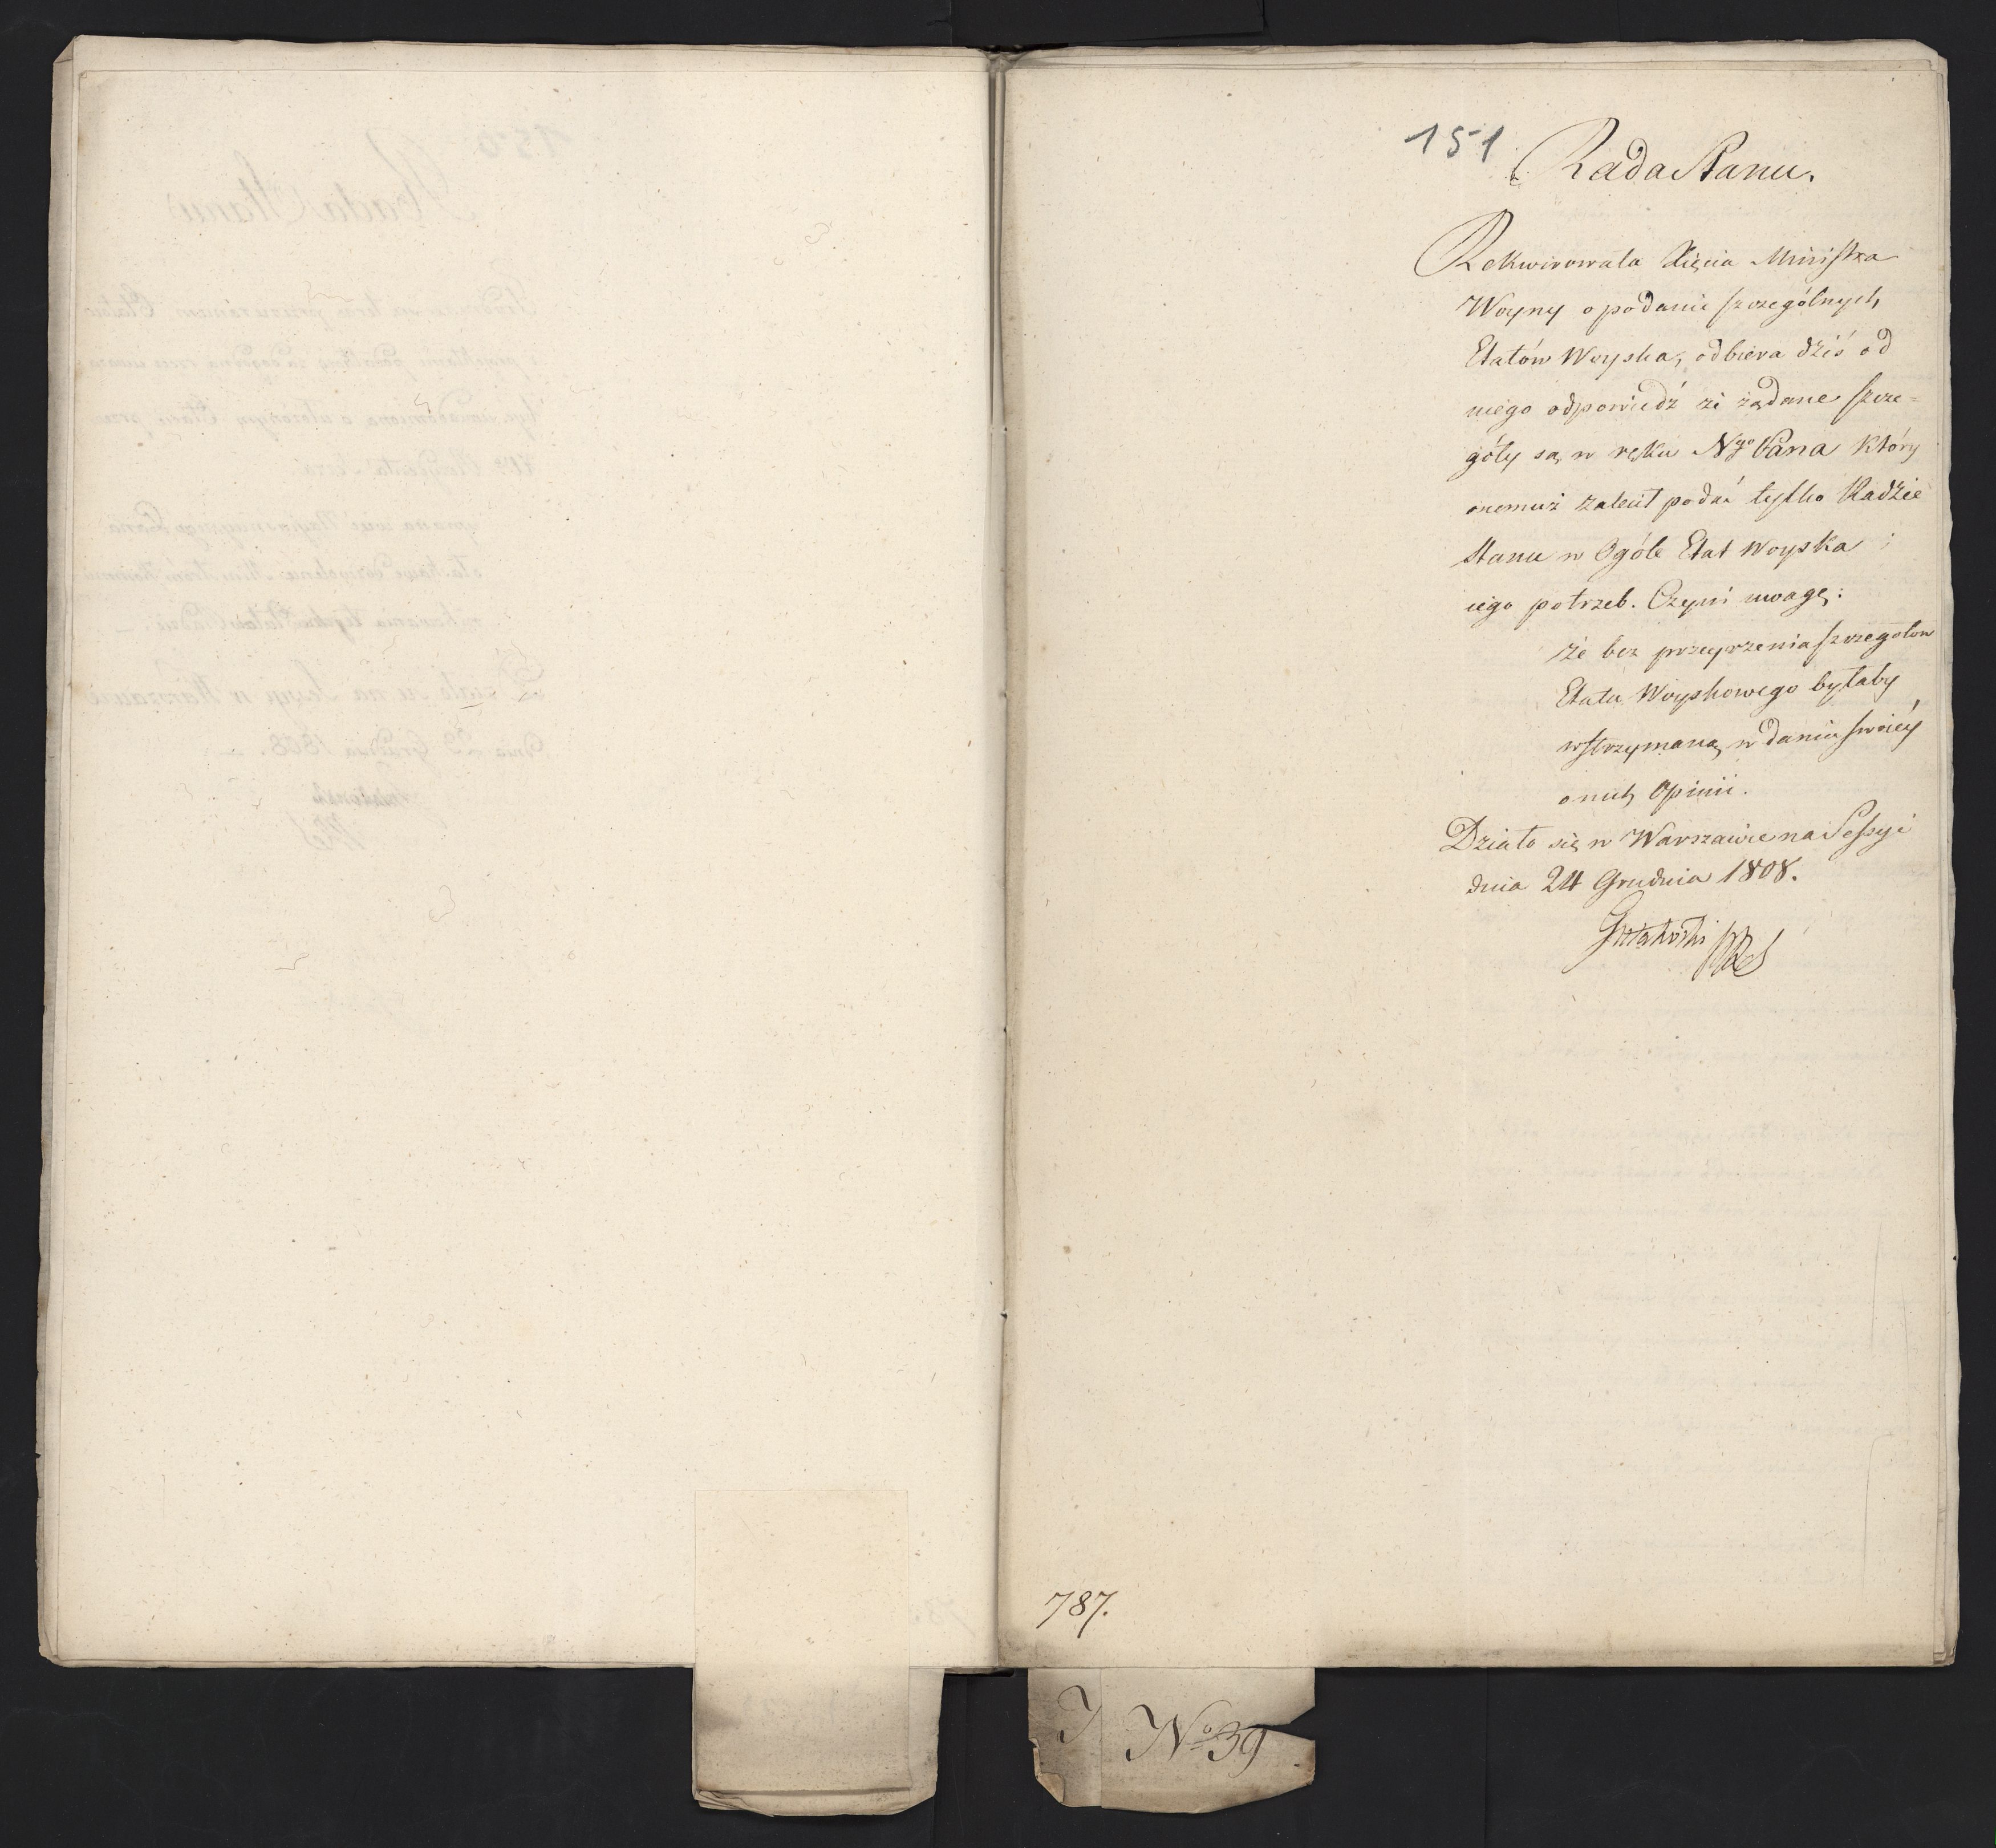 151
Rada Stanu.
Rekwirowała Xięcia Ministra
Woyny o podanie szczególnych
Etatów Woyska, odbiera dziś od
niego odpowiedź że żądane szcze=
góły są w ręku Nygo Pana który
onemuż zalecił podać tylko Radzie
Stanu w Ogóle Etat Woyska i
iego potrzeb. Czyni uwagę:
że bez przeyrzenia szczegołow
Etatu Woyskowego byłaby
wstrzymaną w daniu swoiéy
o nich Opinii.
Działo się w Warszawie na Sessyi
dnia 24 Grudnia 1808.
787.
No 39